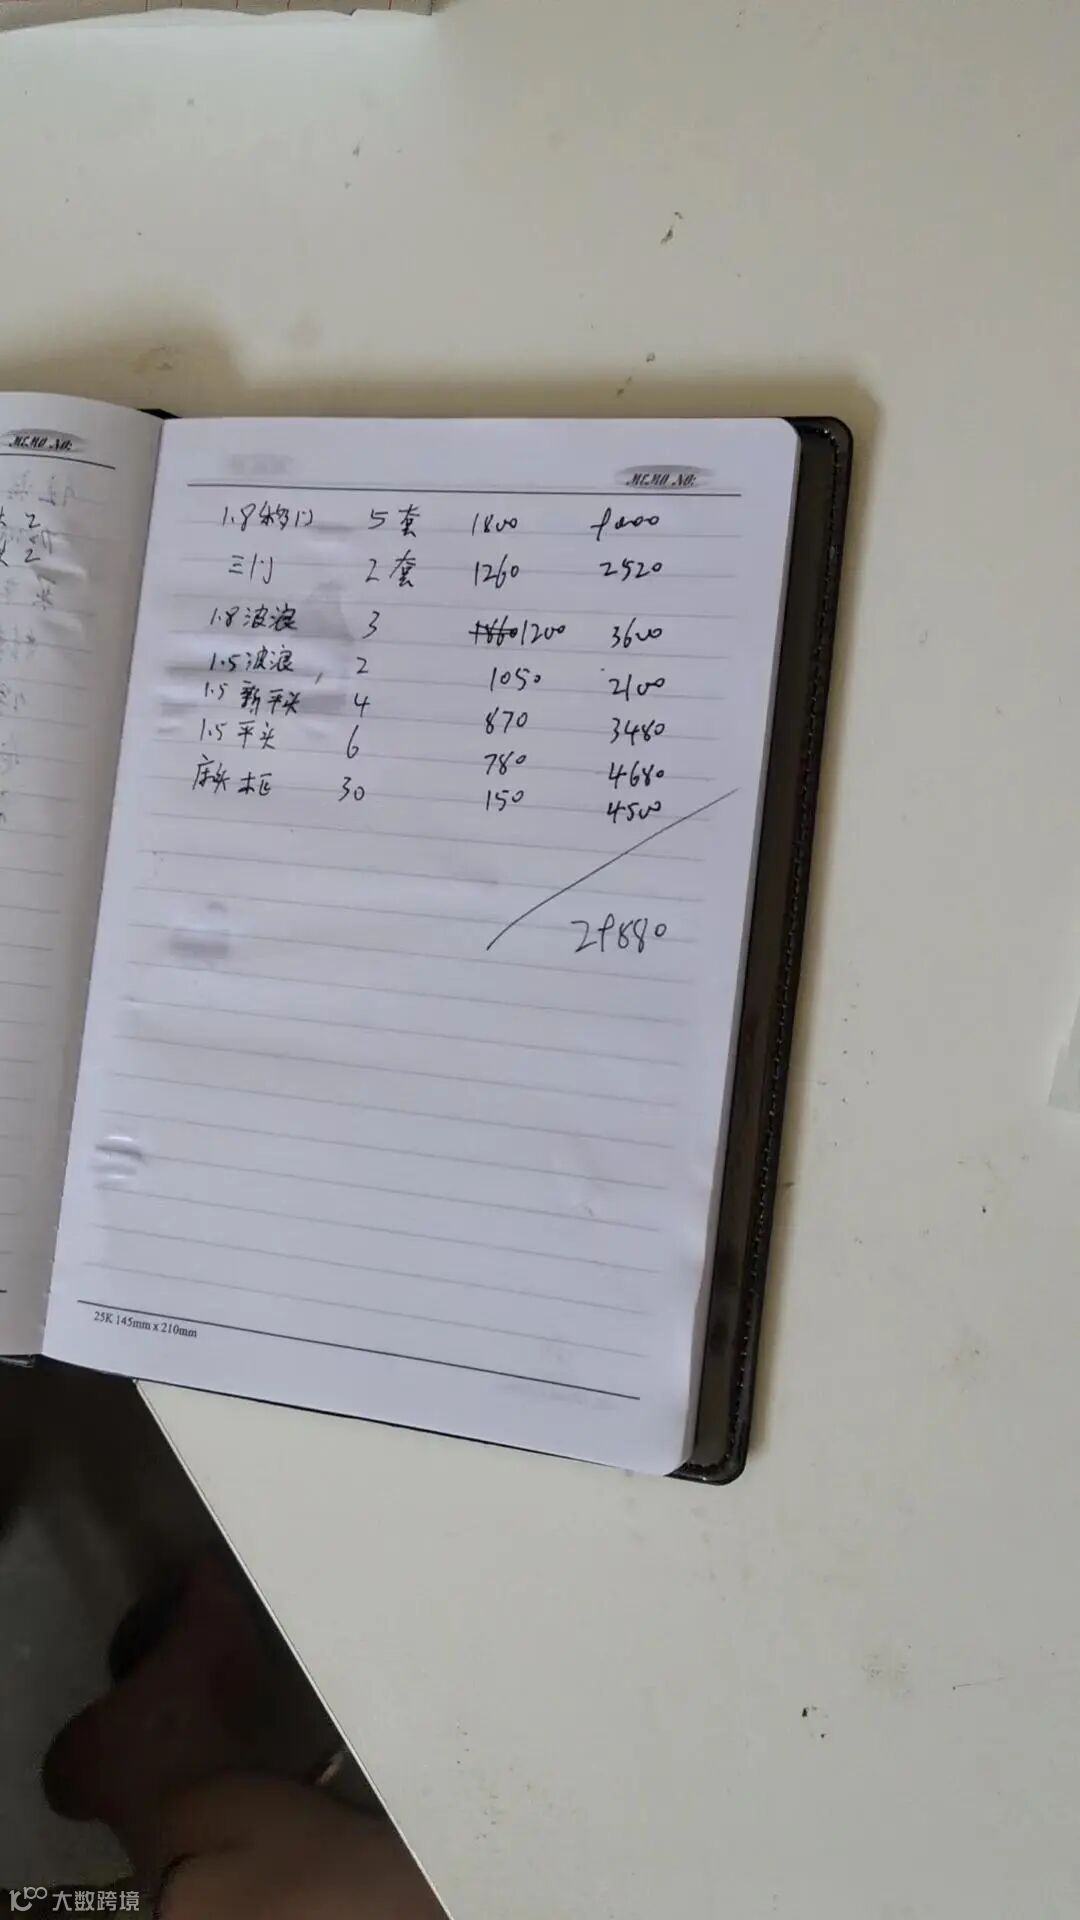 MEMO NO:
大 2
头 2
MEMO NO:
1.8移门 5套 1800 9000
三门 2套 1260 2520
1.8波浪 3 1860 1200 3600
1.5波浪, 2 1050 2100
1.5新平头 4 870 3480
1.5平头 6 780 4680
床头柜 30 150 4500
29880
25K 145mm x 210mm
大数跨境